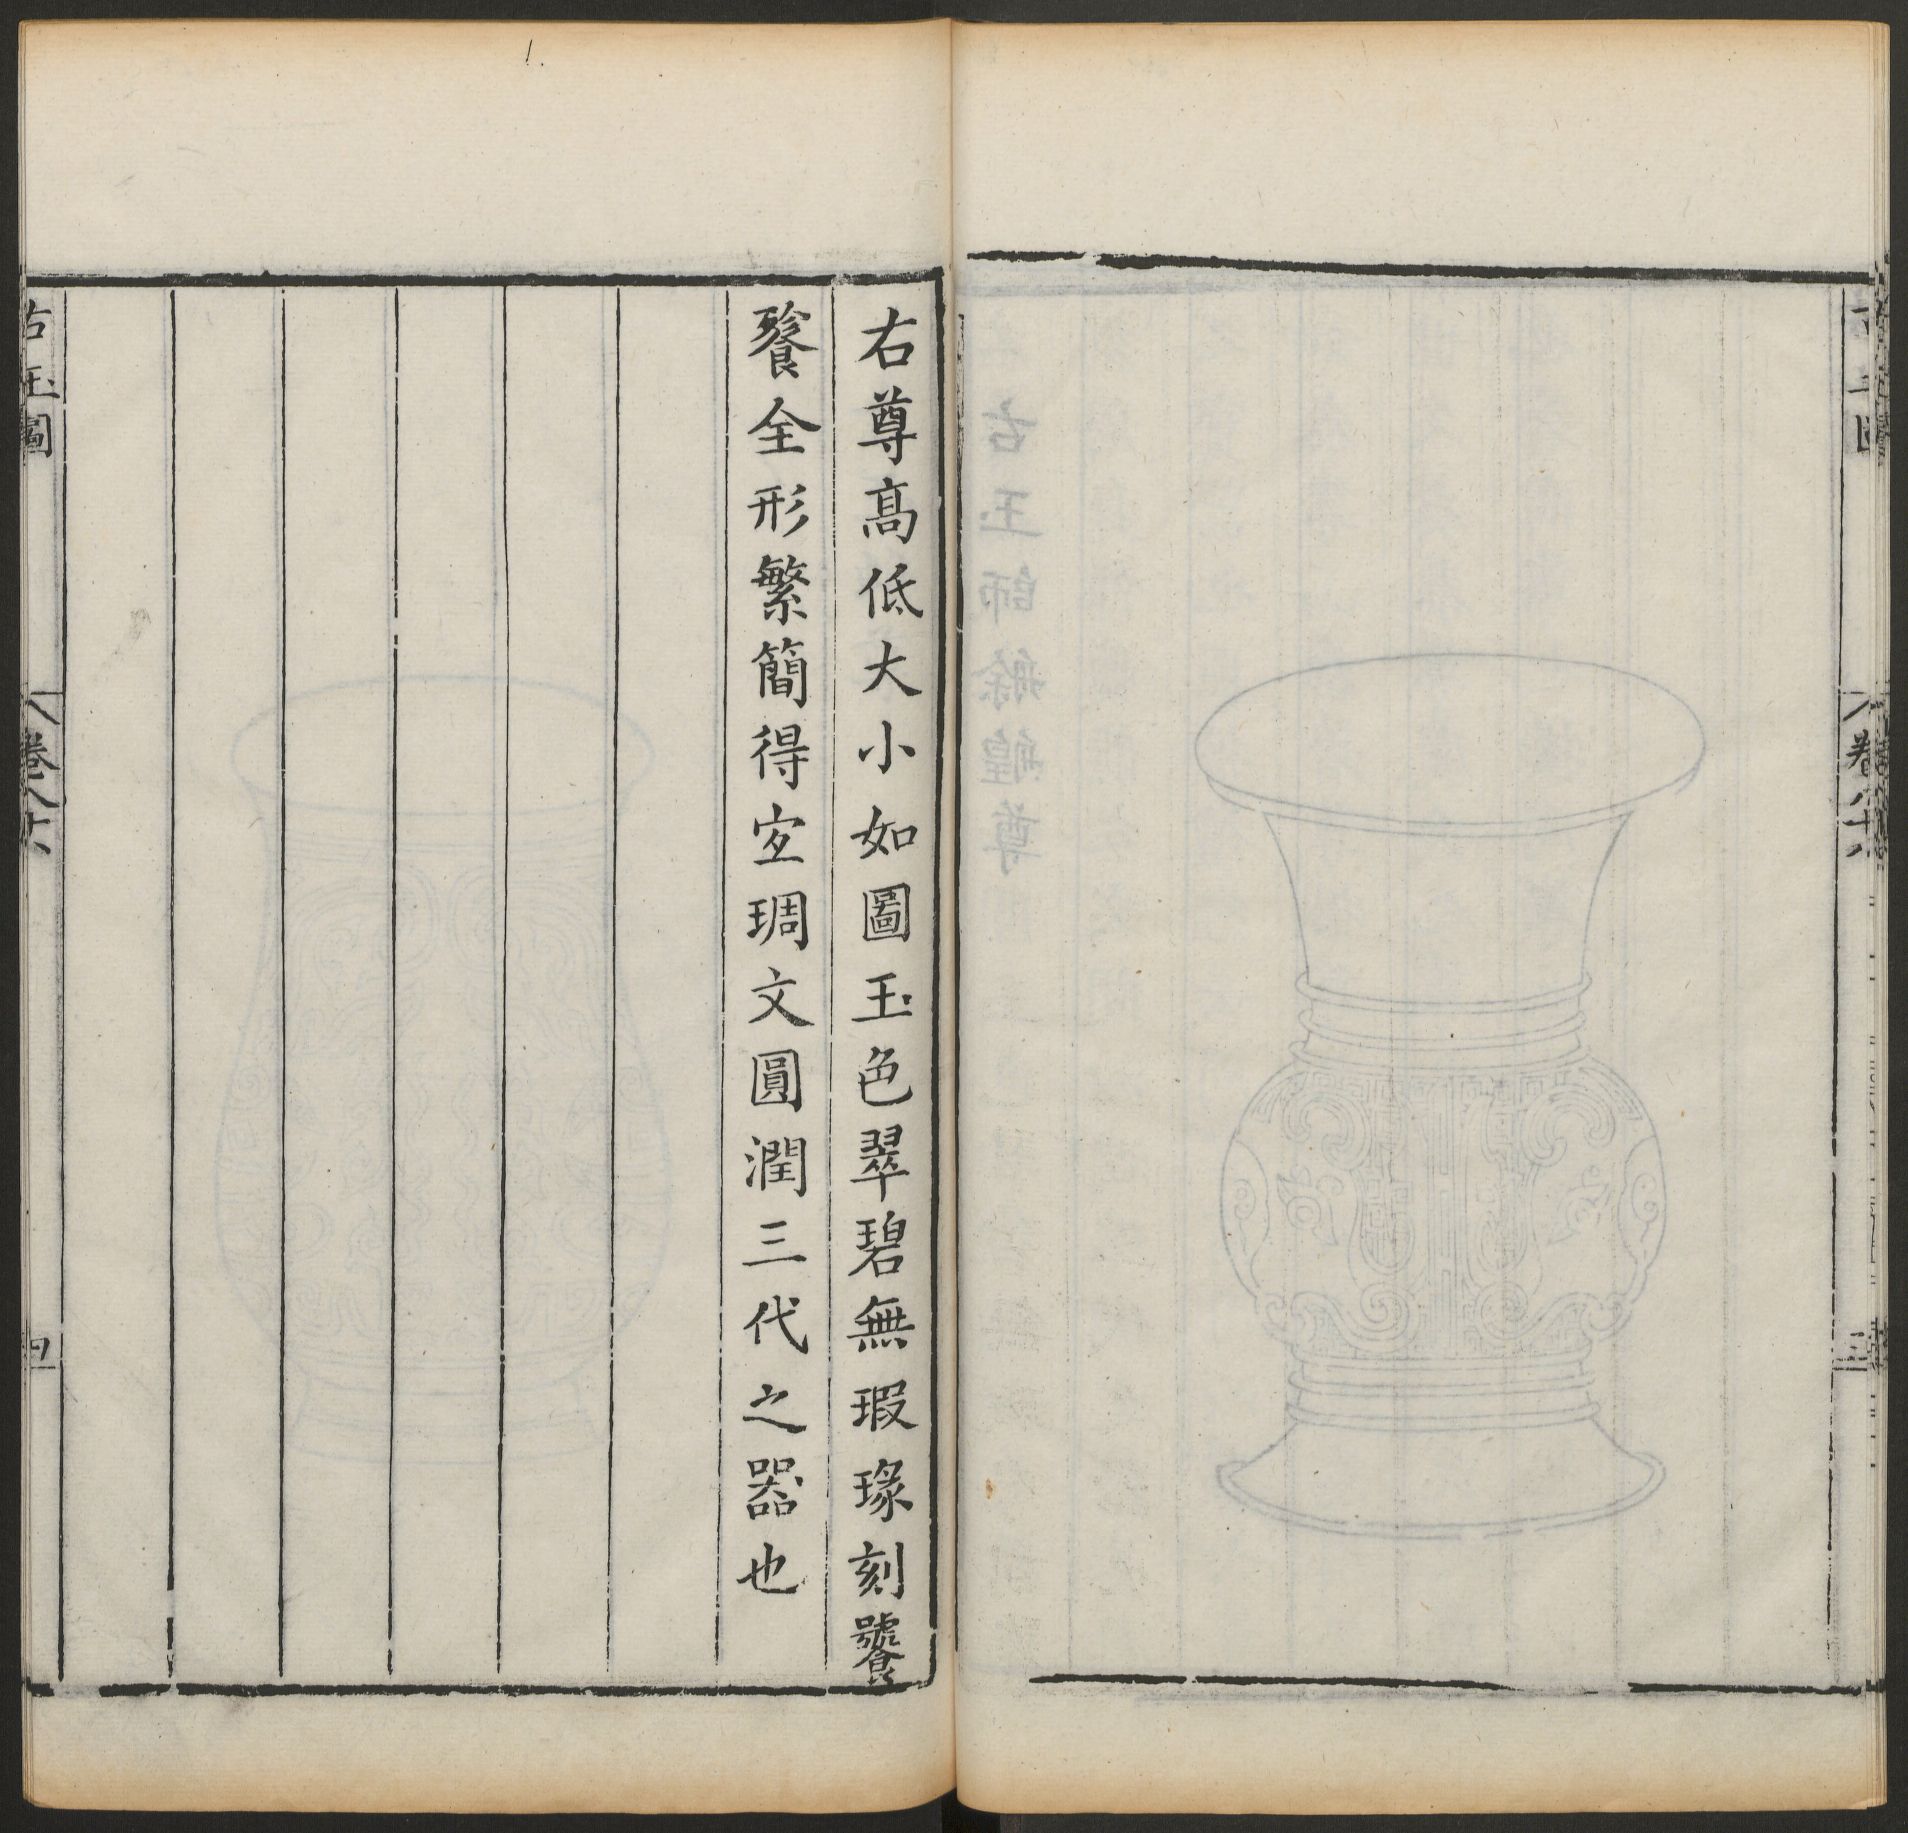 古玉圖
卷八十八
三
右尊髙低大小如圖玉色翠碧無瑕瑑刻饕
餮全形繁簡得宐琱文圓潤三代之器也
古玉圖
卷八十八
四